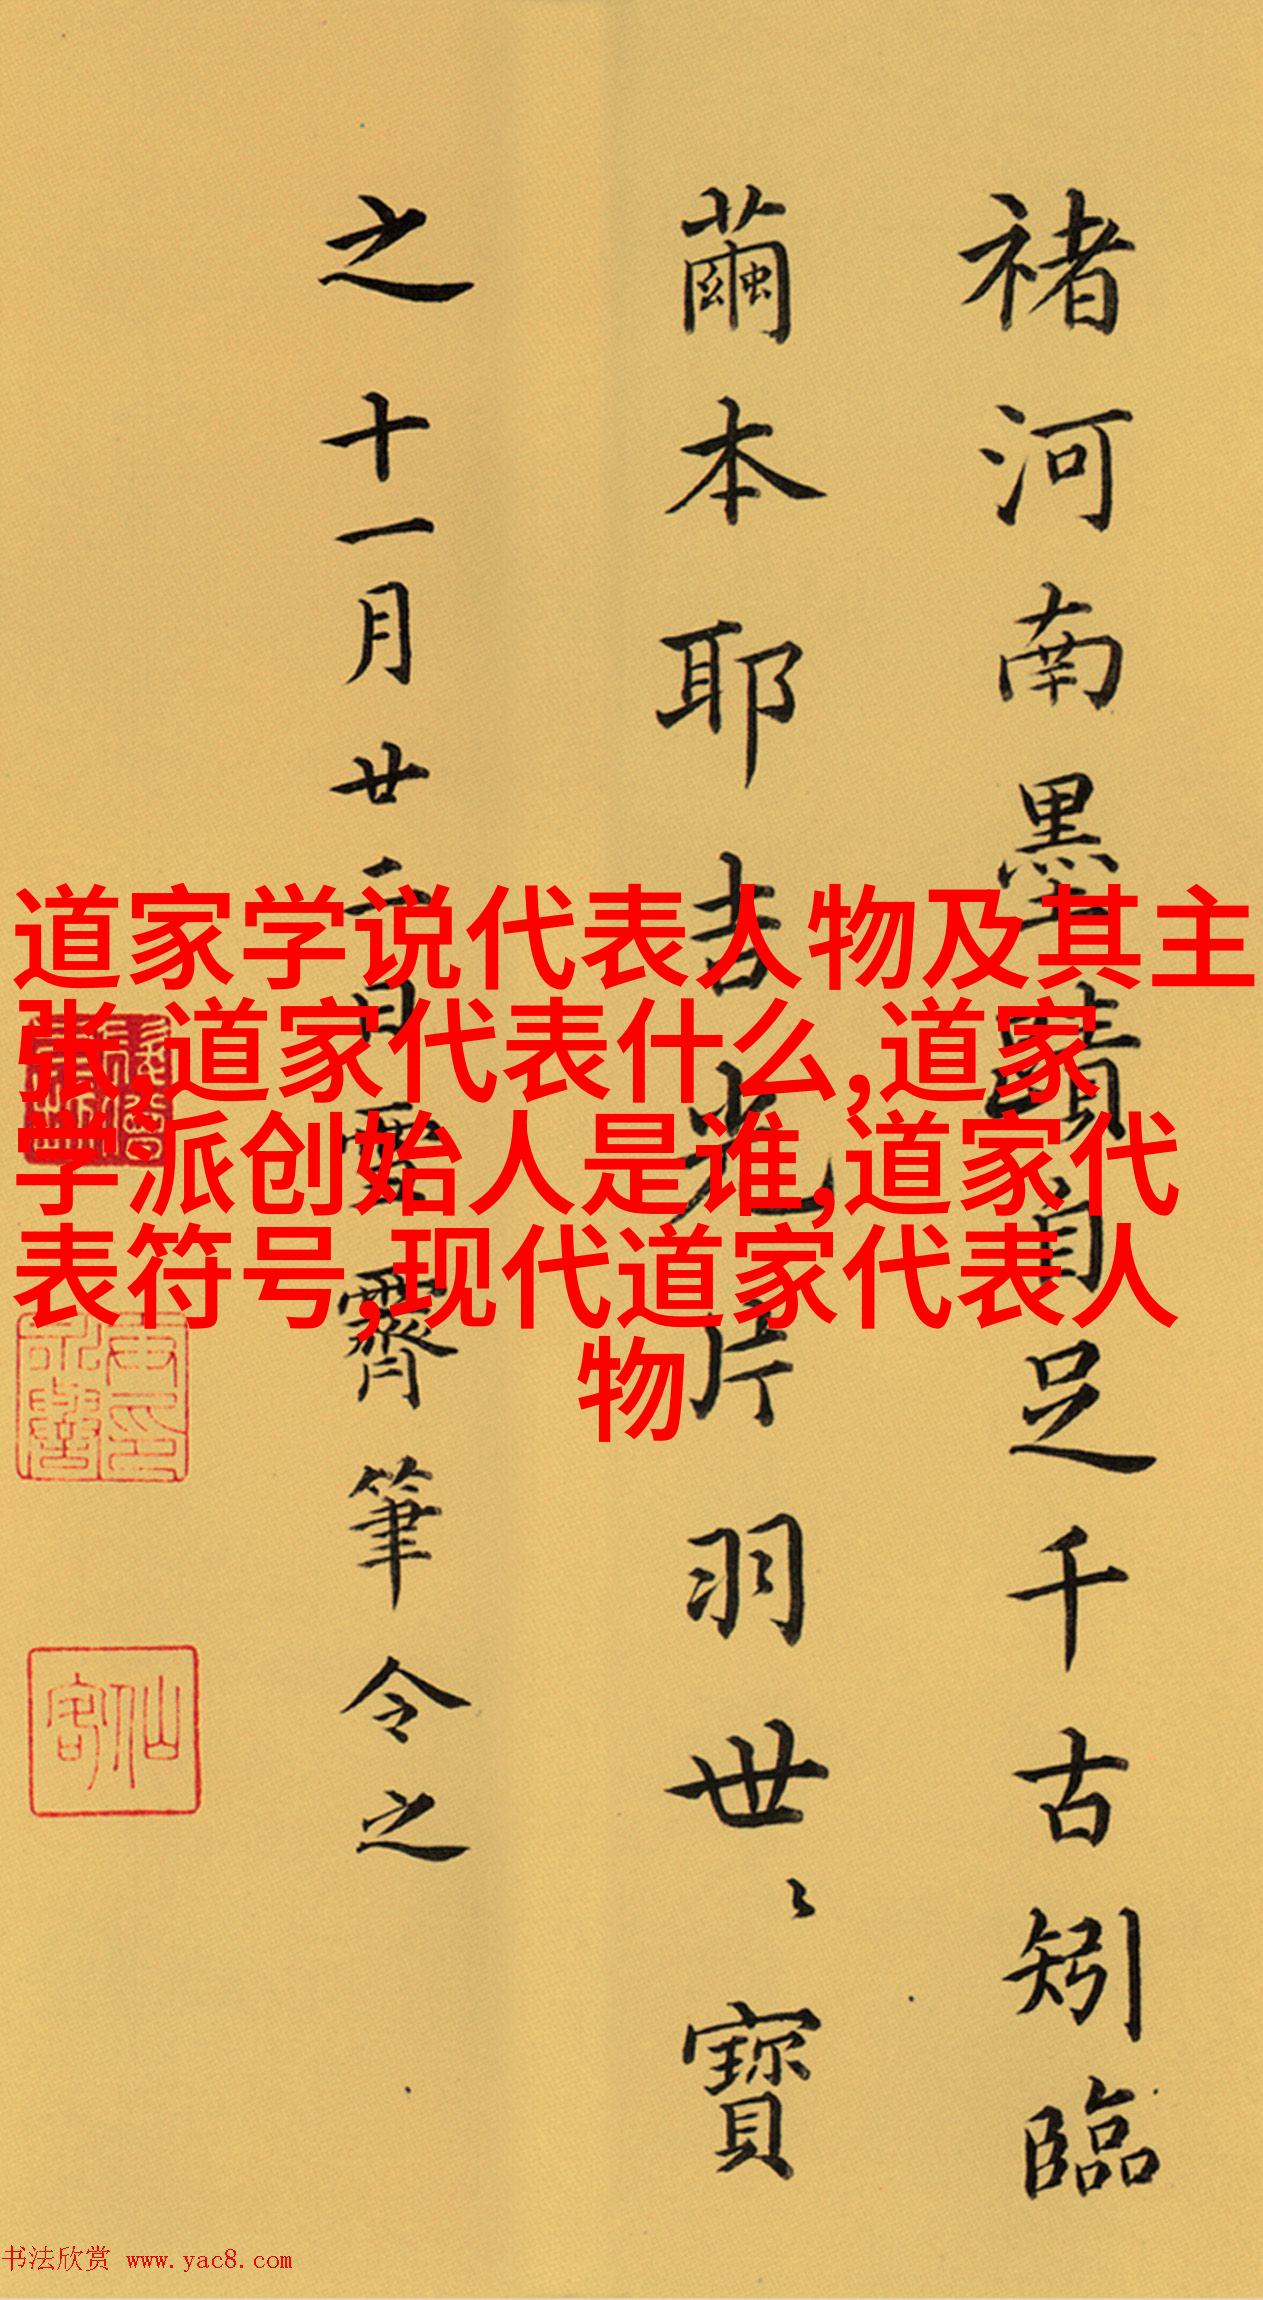 褚河南墨蹟自足千古矧臨
繭本耶吉光片羽世〻寶
之十一月廿二日雪霽筆令之
道家学说代表人物及其主
张,道家代表什么,道家
学派创始人是谁,道家代
表符号,现代道家代表人
物
仙客
书法欣赏 www.yac8.com